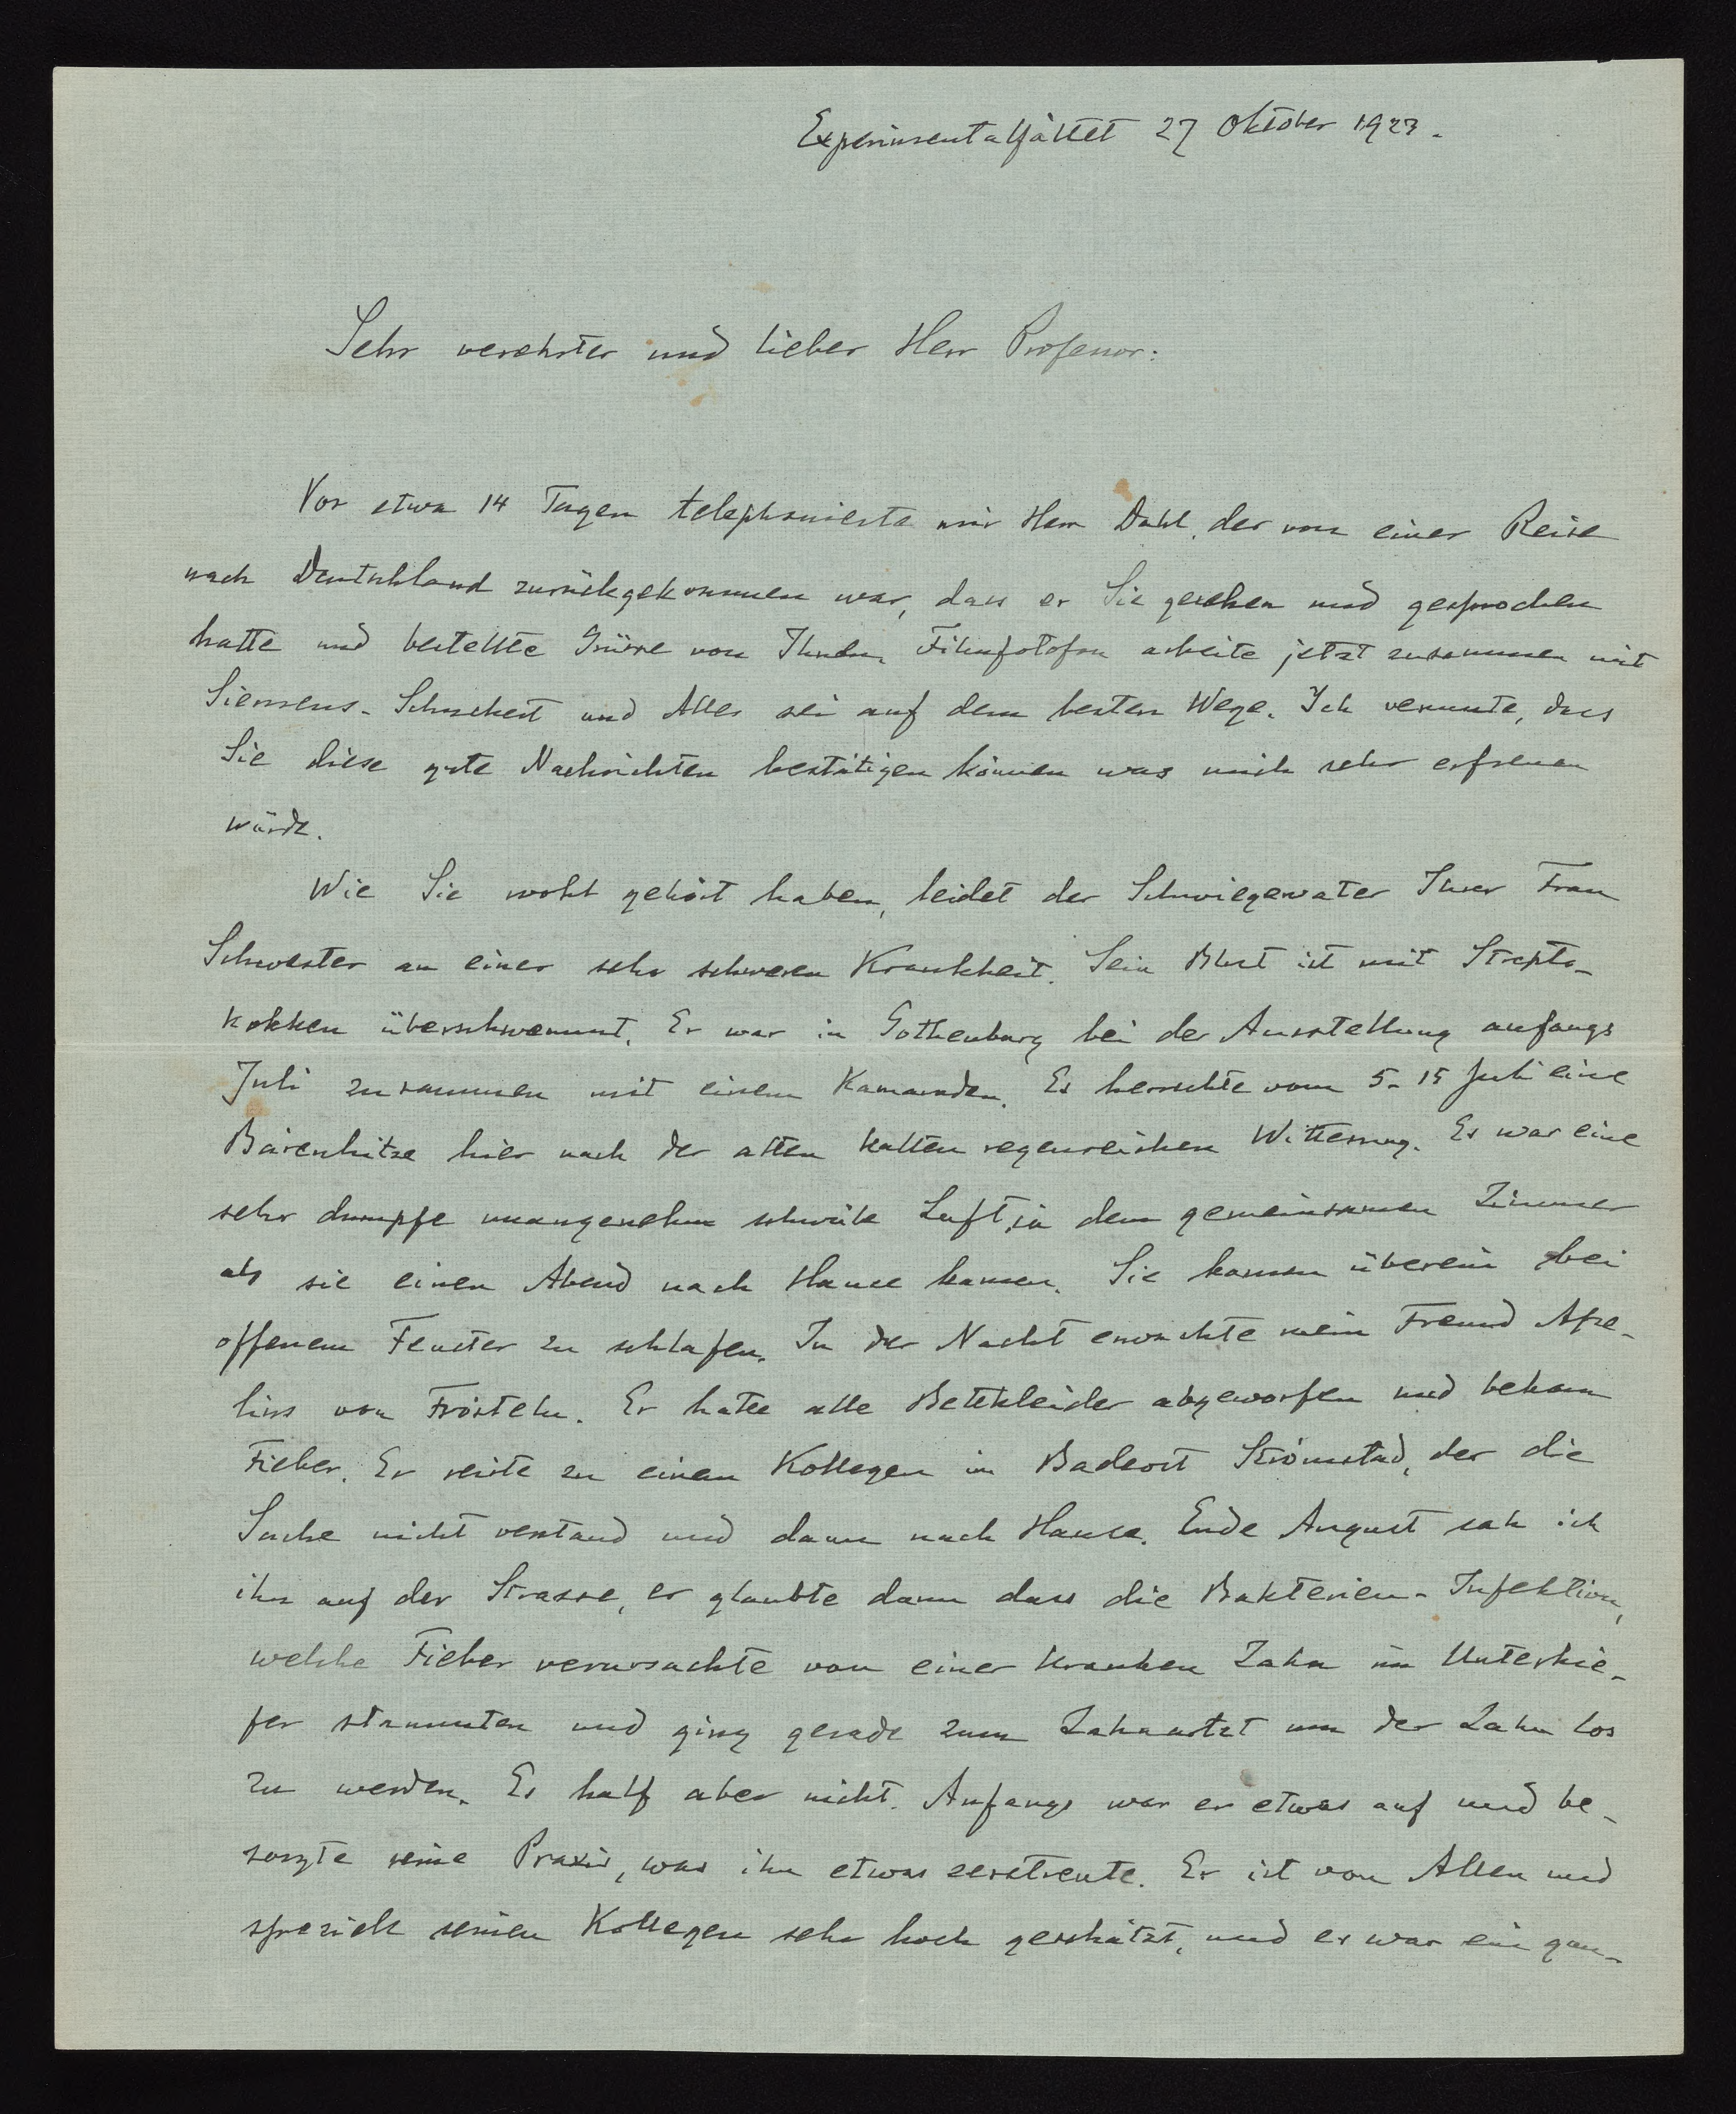 Experimentalfältet 27 Oktober 1923.
Sehr verehrter und lieber Herr Professor:
Vor etwa 14 Tagen telephonierte mir Herr Dahl, der von einer Reise
nach Deutschland zurückgekommen war, dass er Sie gesehen und gesprochen
hatte und bestellte Grüsse von Ihnen. Filmfotofon arbeite jetzt zusammen mit
Siemens-Schuckert und Alles sei auf dem besten Wege. Ich vermute, dass
Sie diese gute Nachrichten bestätigen können was mich sehr erfreuen
würde.
Wie Sie wohl gehört haben, leidet der Schwiegervater Ihrer Frau
Schwester an einer sehr schweren Krankheit. Sein Blut ist mit Strepto-
kokken überschwemmt. Er war in Gothenburg bei der Ausstellung anfangs
Juli zusammen mit einem Kamaraden. Es herrschte vom 5-15 Juli eine
Bärenhitze hier nach der alten kalten regenreichen Witterung. Es war eine
sehr dumpfe unangenehm schwüle Luft in dem gemeinsamen Zimmer
als sie einen Abend nach Hause kamen. Sie kamen überein bei
offenem Fenster zu schlafen. In der Nacht erwachte mein Freund Afze-
lius von Frösteln. Er hatte alle Bettkleider abgeworfen und bekam
Fieber. Er reiste zu einem Kollegen im Badeort Strömstad, der die
Sache nicht verstand und dann nach Hause. Ende August sah ich
ihn auf der Strasse, er glaubte dann dass die Bakterien-Infektion,
welche Fieber verursachte von einer kranken Zahn im Unterkie-
fer stammten und ging gerade zum Zahnartzt um der Zahn los
zu werden. Es half aber nicht. Anfangs war er etwas auf und be-
sorgte seine Praxis, was ihn etwas zerstreute. Er ist von Allen und
speziell seinen Kollegen sehr hoch geschätzt, und er war ein gan-